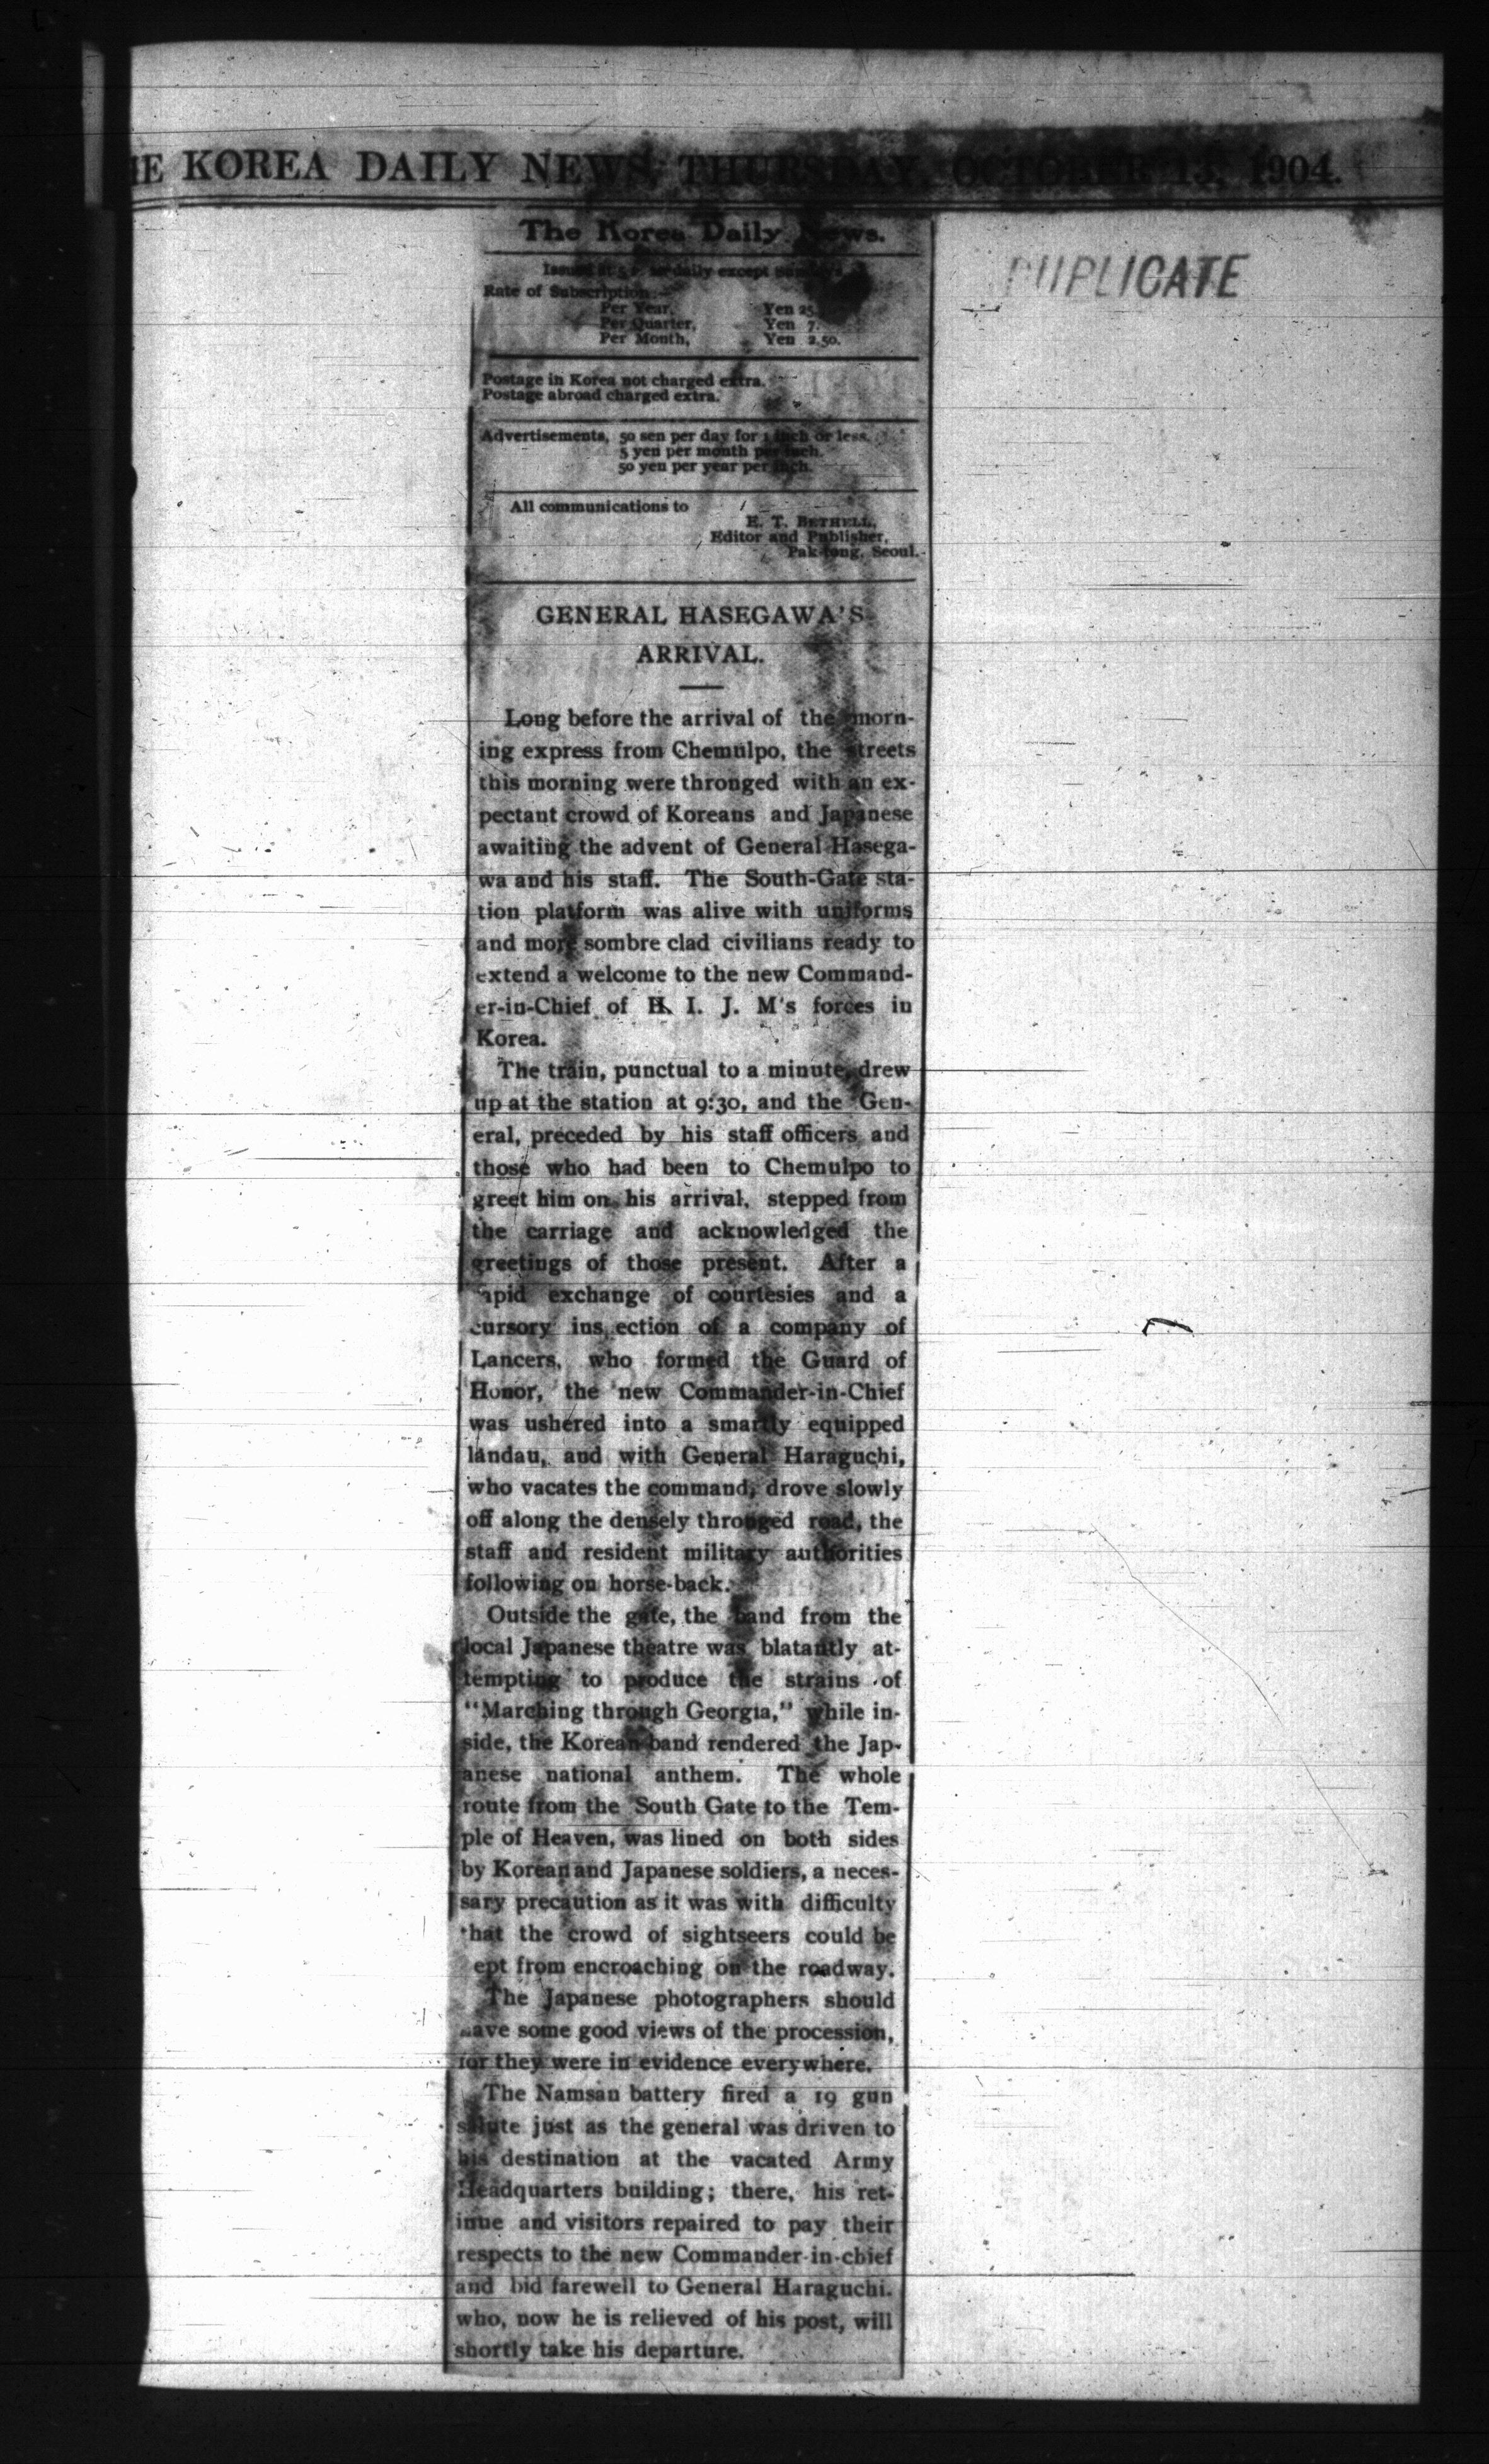 HE KOREA DAILY NEWS, THURSDAY, OCTOBER 13, 1904.
DUPLICATE
The Korea Daily News.
Issued at daily except
Rate of Subscription:—
Per Year, Yen 25.
Per Quarter, Yen 7.
Per Month, Yen 2.50.
Postage in Korea not charged extra.
Postage abroad charged extra.
Advertisements, 50 sen per day for 1 inch or less.
5 yen per month per inch.
50 yen per year per inch.
All communications to
E. T. BETHELL,
Editor and Publisher,
Pak-tong, Seoul.
GENERAL HASEGAWA'S
ARRIVAL.
Long before the arrival of the morn-
ing express from Chemulpo, the streets
this morning were thronged with an ex-
pectant crowd of Koreans and Japanese
awaiting the advent of General Hasega-
wa and his staff. The South-Gate sta-
tion platform was alive with uniforms
and more sombre clad civilians ready to
extend a welcome to the new Command-
er-in-Chief of H. I. J. M's forces in
Korea.
The train, punctual to a minute, drew
up at the station at 9:30, and the Gen-
eral, preceded by his staff officers and
those who had been to Chemulpo to
greet him on his arrival, stepped from
the carriage and acknowledged the
greetings of those present. After a
rapid exchange of courtesies and a
cursory inspection of a company of
Lancers, who formed the Guard of
Honor, the new Commander-in-Chief
was ushered into a smartly equipped
landau, and with General Haraguchi,
who vacates the command, drove slowly
off along the densely thronged road, the
staff and resident military authorities
following on horse-back.
Outside the gate, the band from the
local Japanese theatre was blatantly at-
tempting to produce the strains of
"Marching through Georgia," while in-
side, the Korean band rendered the Jap-
anese national anthem. The whole
route from the South Gate to the Tem-
ple of Heaven, was lined on both sides
by Korean and Japanese soldiers, a neces-
sary precaution as it was with difficulty
that the crowd of sightseers could be
kept from encroaching on the roadway.
The Japanese photographers should
have some good views of the procession,
for they were in evidence everywhere.
The Namsan battery fired a 19 gun
salute just as the general was driven to
his destination at the vacated Army
Headquarters building; there, his ret-
inue and visitors repaired to pay their
respects to the new Commander-in-chief
and bid farewell to General Haraguchi.
who, now he is relieved of his post, will
shortly take his departure.